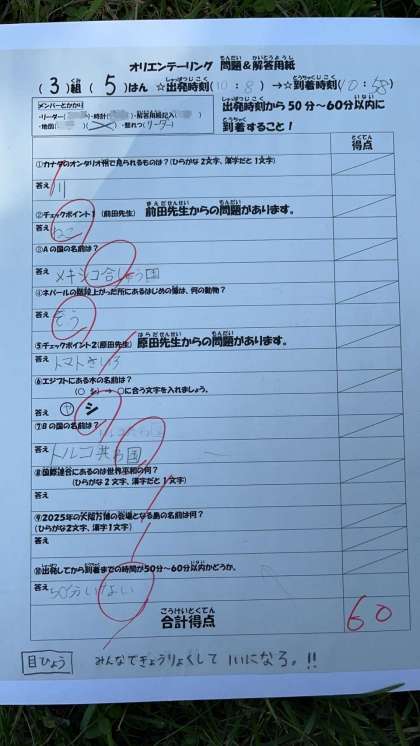 オリエンテーリング 問題&解答用紙
もんだい かいとうようし
(3)組 (5)はん ☆出発時刻(10:8)→☆到着時刻(10:58)
くみ しゅっぱつじこく とうちゃくじこく
メンバーとかかり
・リーダー( )・時計( )・解答用紙記入( )
・地図( )( )・整れつ(リーダー)
出発時刻から50分~60分以内に
到着すること!
とくてん
得点
①カナダのオンタリオ州で見られるものは?(ひらがな2文字、漢字だと1文字)
答え 川
②チェックポイント1 (前田先生) 前田先生からの問題があります。
答え ねこ
③Aの国の名前は?
答え メキシコ合しゅう国
④ネパールの階段上がった所にあるはじめの像は、何の動物?
答え ぞう
⑤チェックポイント2(原田先生) 原田先生からの問題があります。
答え トマト
⑥エジプトにある木の名前は?
(○ シ) → ○に合う文字を入れましょう。
答え ヤ シ
⑦Bの国の名前は?
答え トルコ共わ国
⑧国際連合にあるのは世界平和の何?
(ひらがな2文字、漢字だと1文字)
答え
⑨2025年の大阪万博の会場となる島の名前は何?
(ひらがな2文字、漢字1文字)
答え
⑩出発してから到着までの時間が50分~60分以内かどうか。
答え 50分いない
ごうけいとくてん
合計得点
60
目ひょう みんなできょうりょくして いいになろ。!!